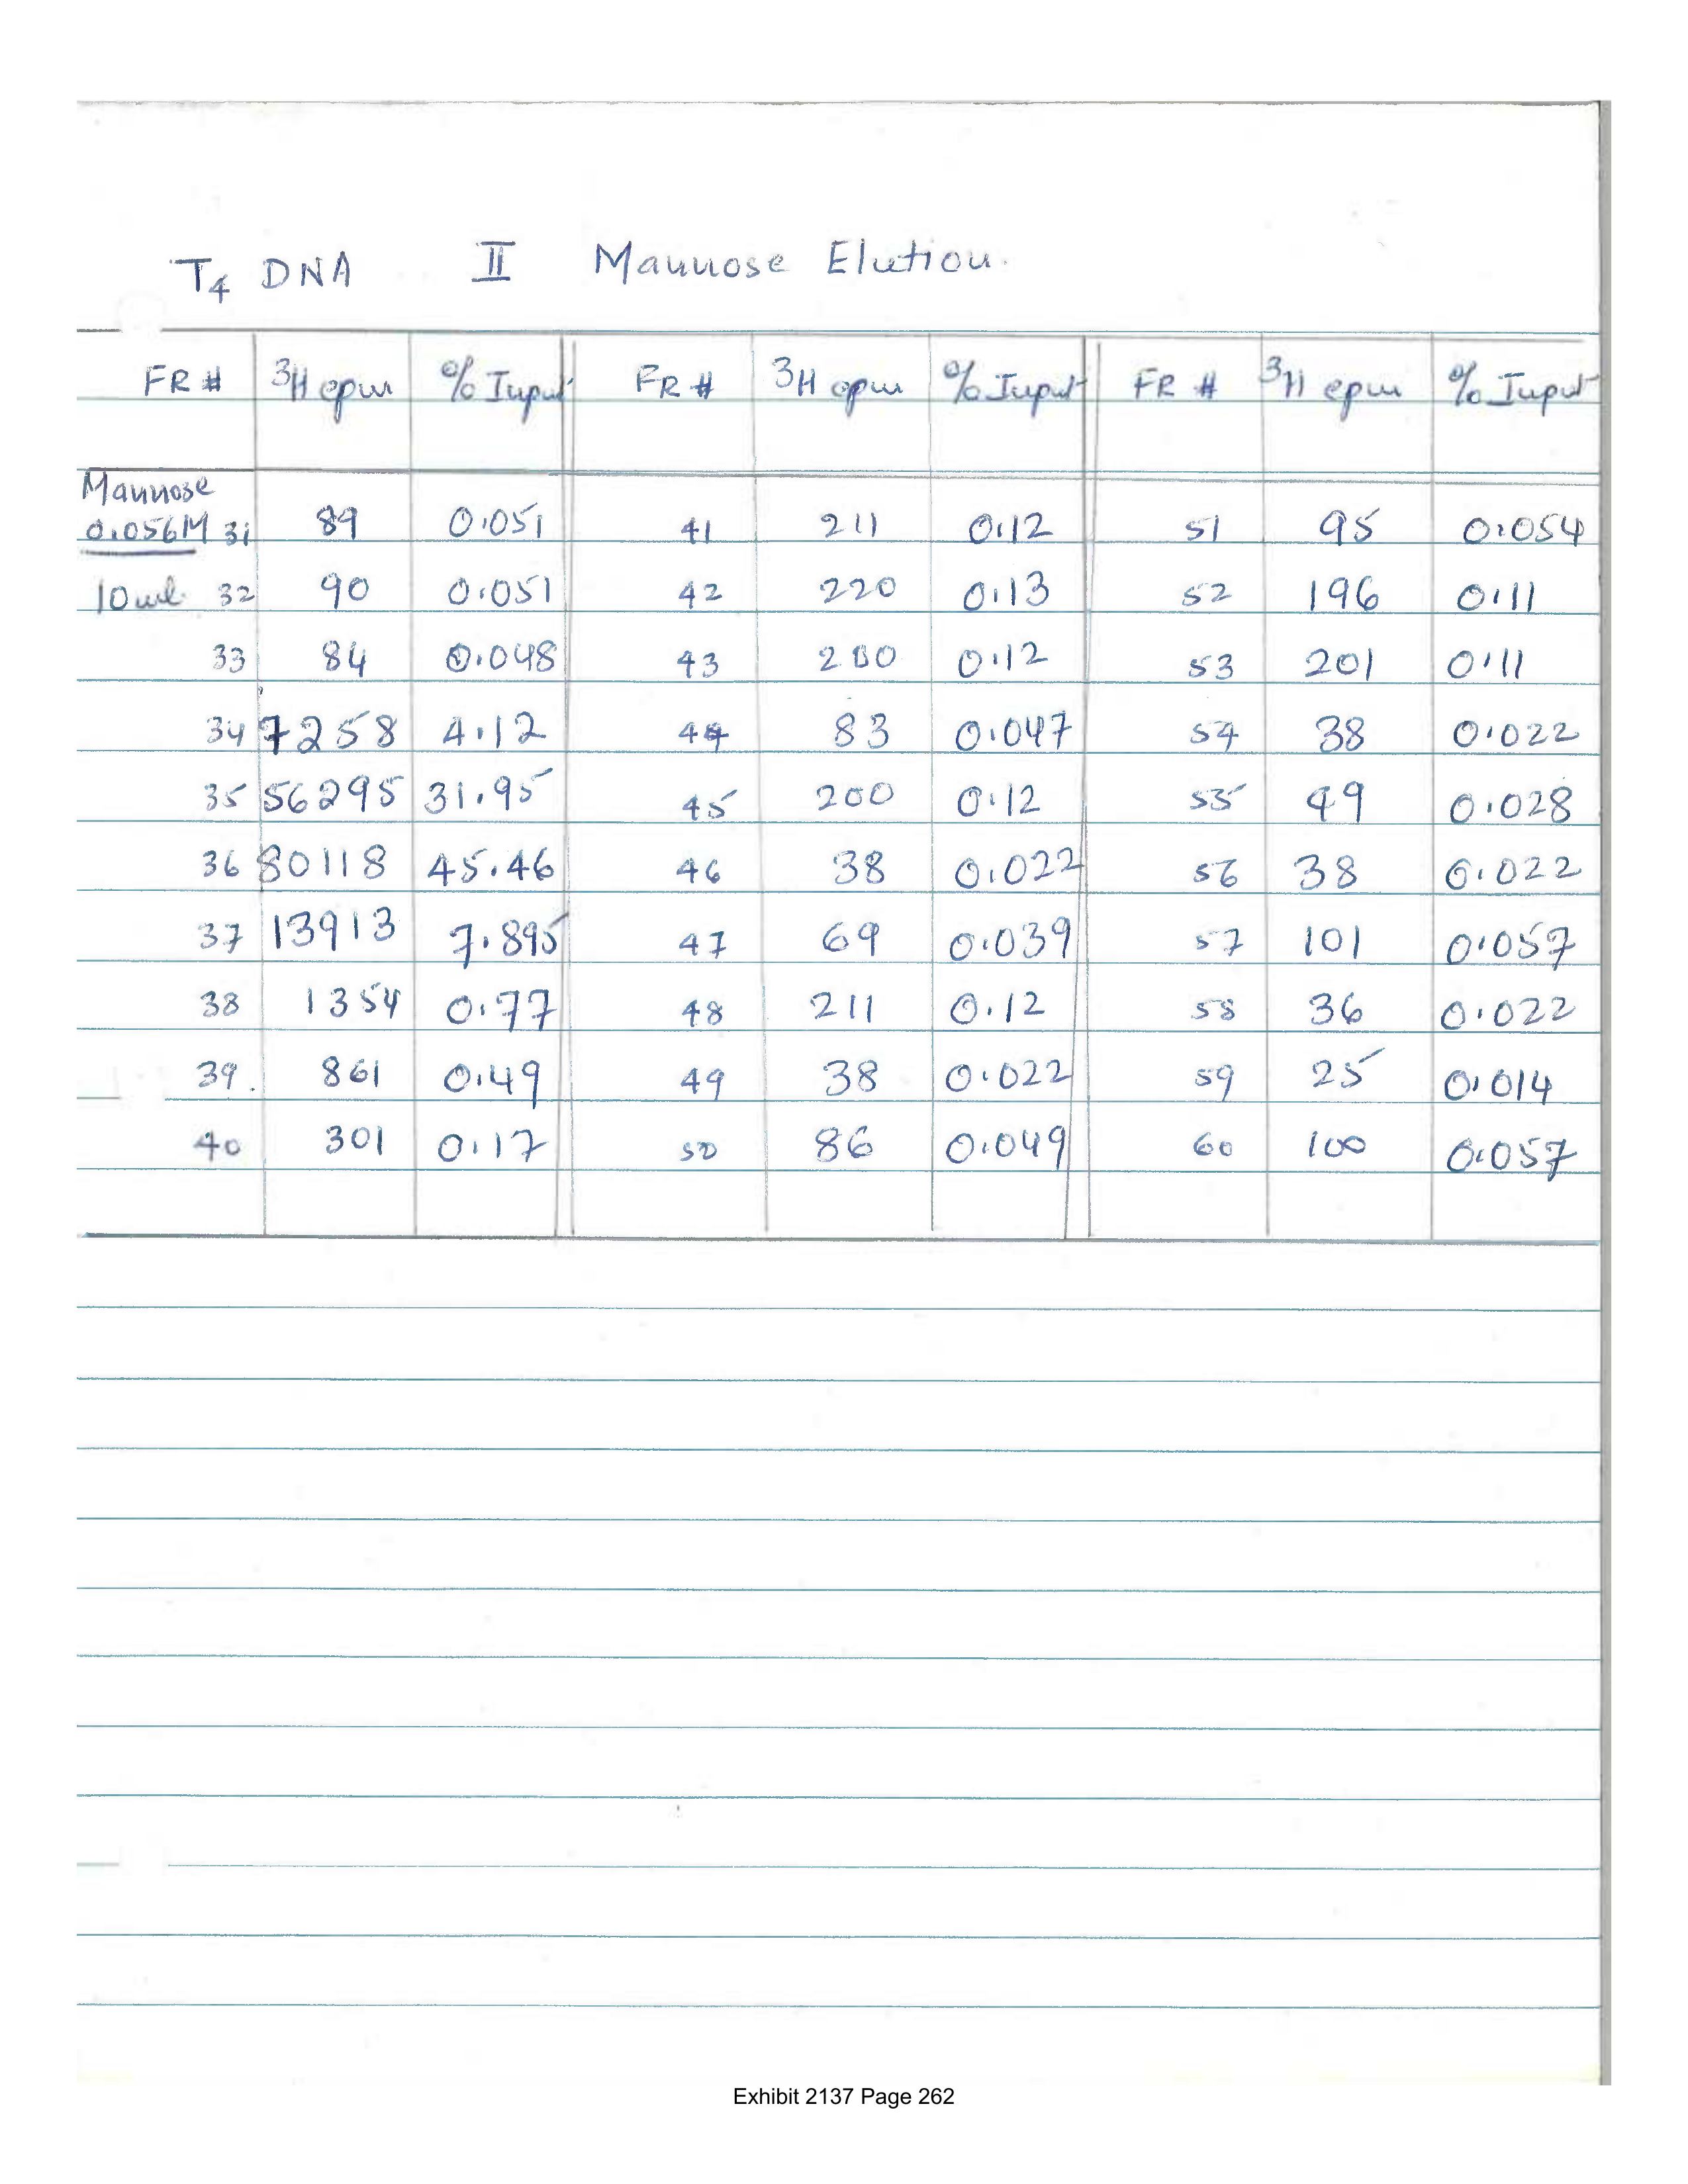 T4 DNA II Mannose Elution.
FR # 3H cpm % Input FR # 3H cpm % Input FR # 3H cpm % Input
Mannose
0.056M 31 89 0.051 41 211 0.12 51 95 0.054
10 ml 32 90 0.051 42 220 0.13 52 196 0.11
33 84 0.048 43 200 0.12 53 201 0.11
34 7258 4.12 44 83 0.047 54 38 0.022
35 56295 31.95 45 200 0.12 55 49 0.028
36 80118 45.46 46 38 0.022 56 38 0.022
37 13913 7.895 47 69 0.039 57 101 0.057
38 1354 0.77 48 211 0.12 58 36 0.022
39. 861 0.49 49 38 0.022 59 25 0.014
40 301 0.17 50 86 0.049 60 100 0.057
Exhibit 2137 Page 262